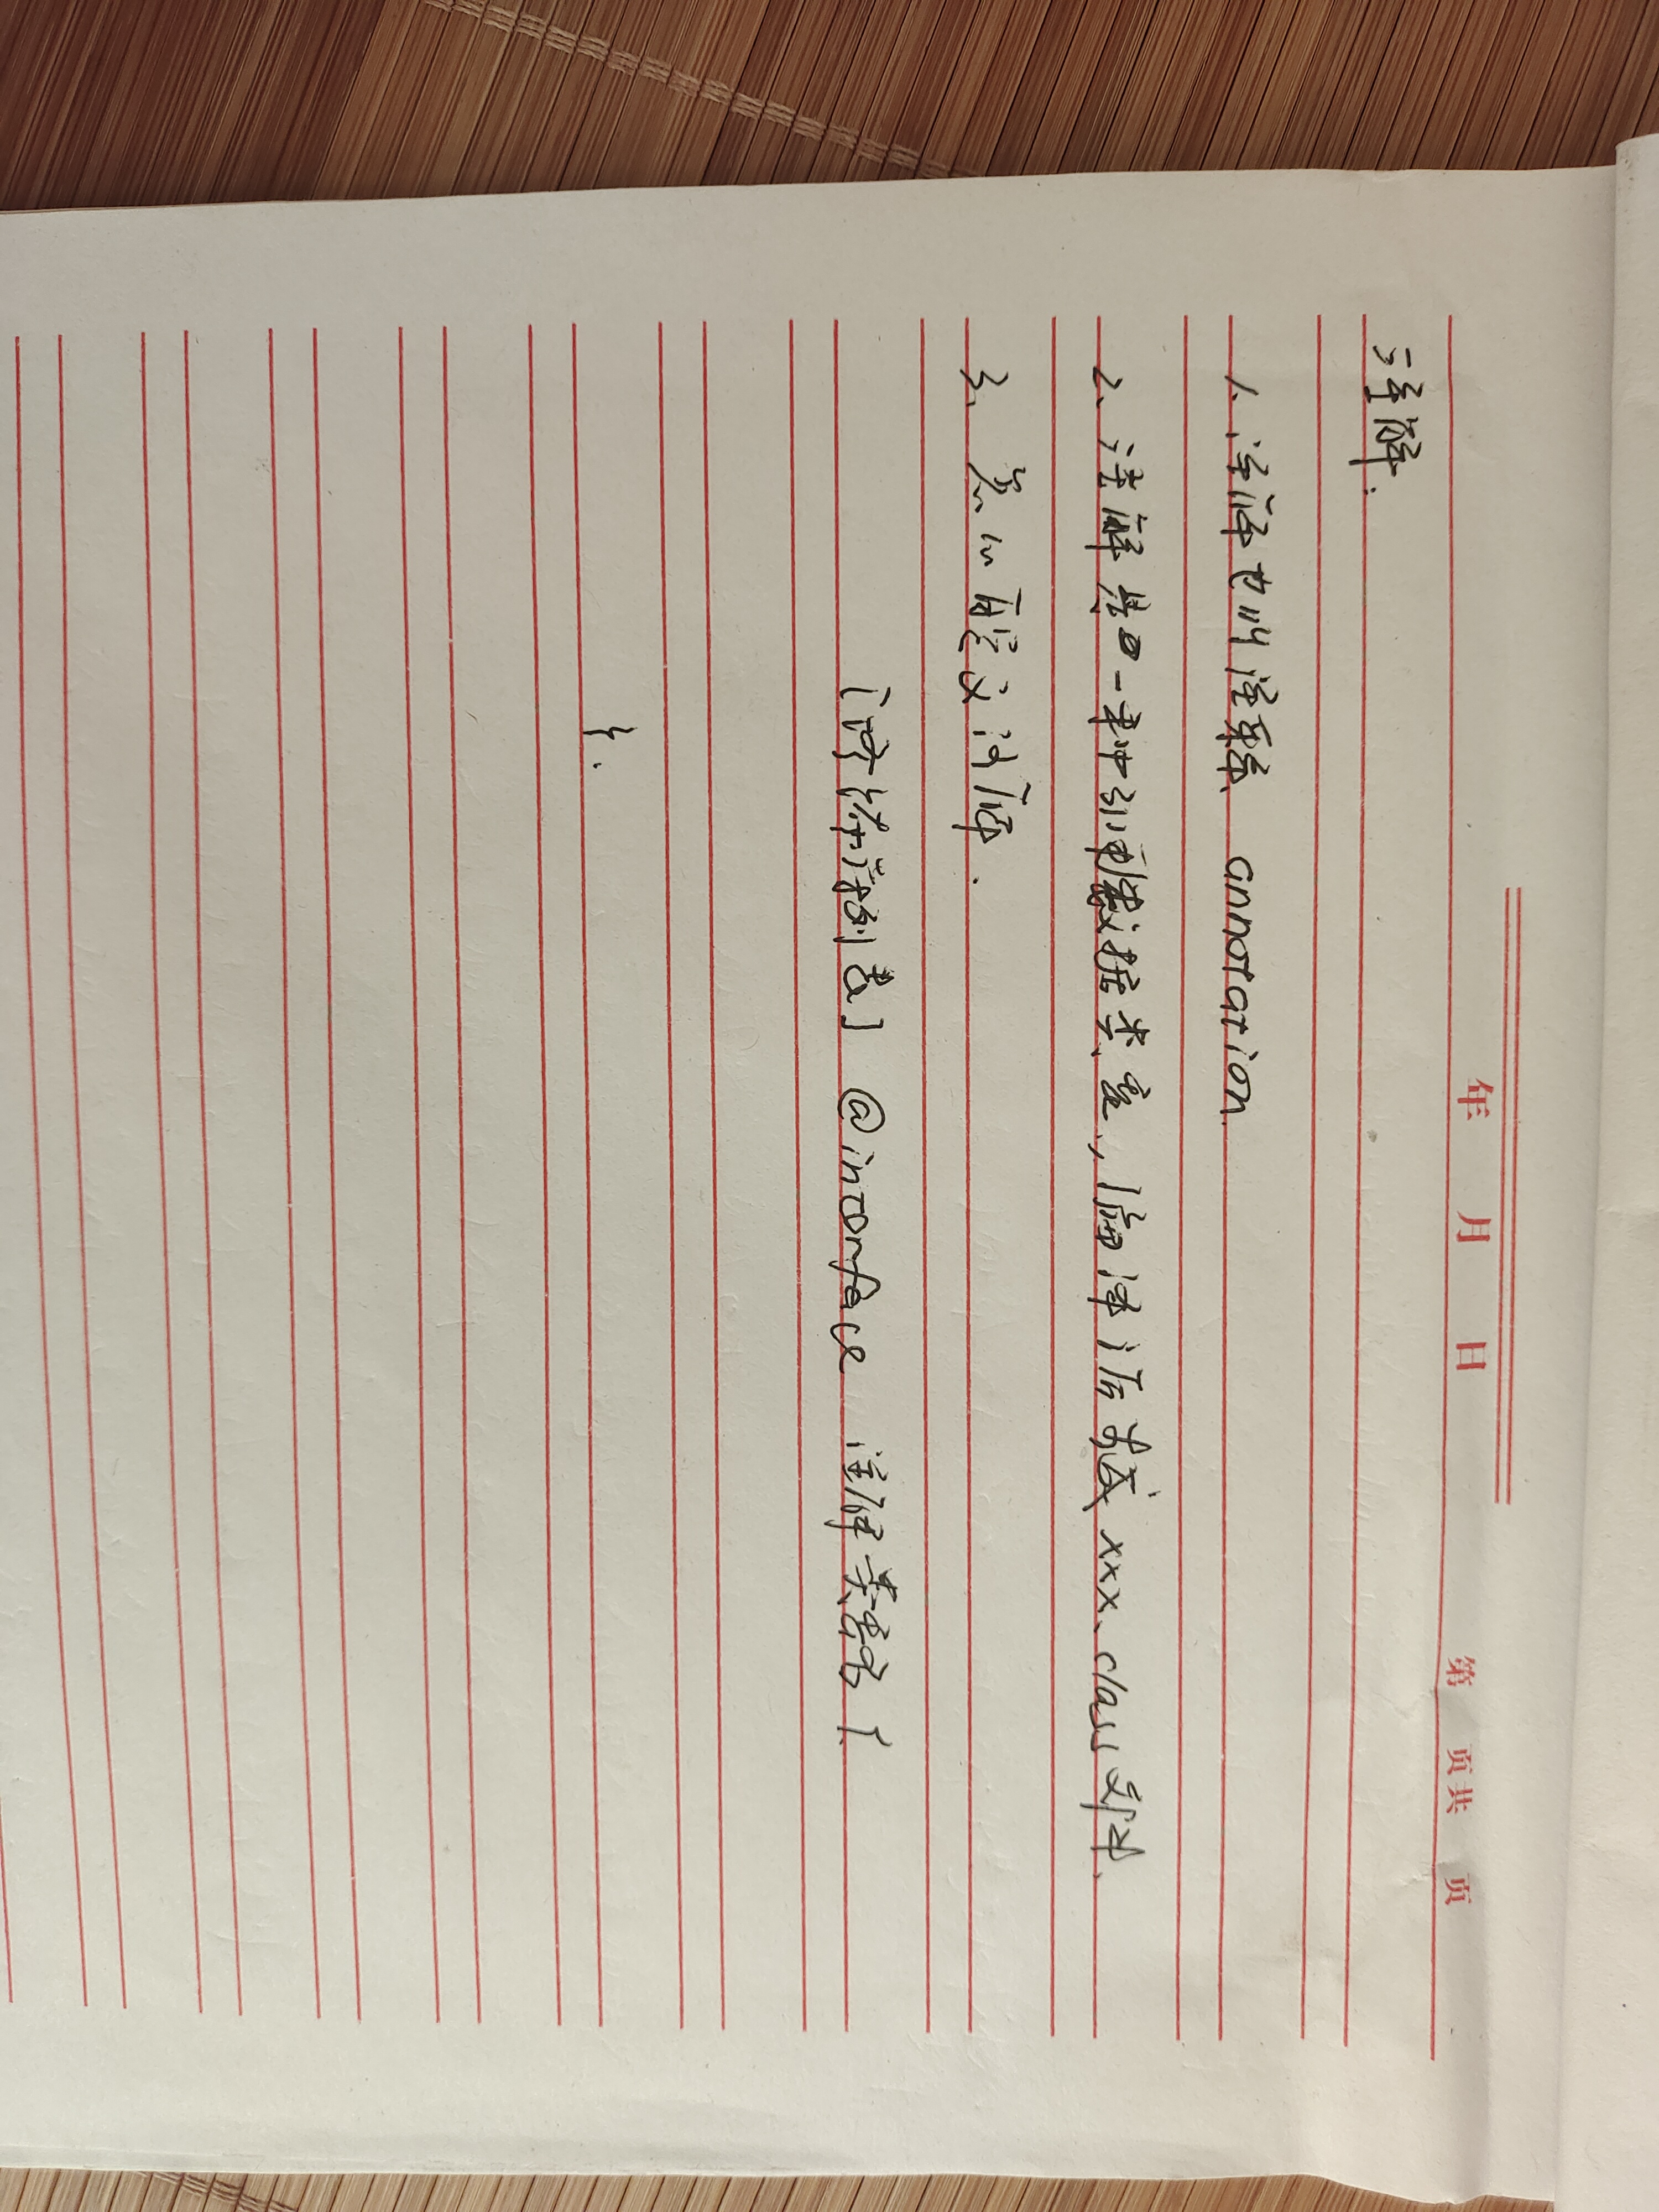 年 月 日 第 页共 页
注解.
1、注解也叫注释 annotation
2、注解是一种引用数据类型, 编译后生成 xxx.class文件.
3、怎么自定义注解.
[修饰符列表] @interface 注解类型名{
}.